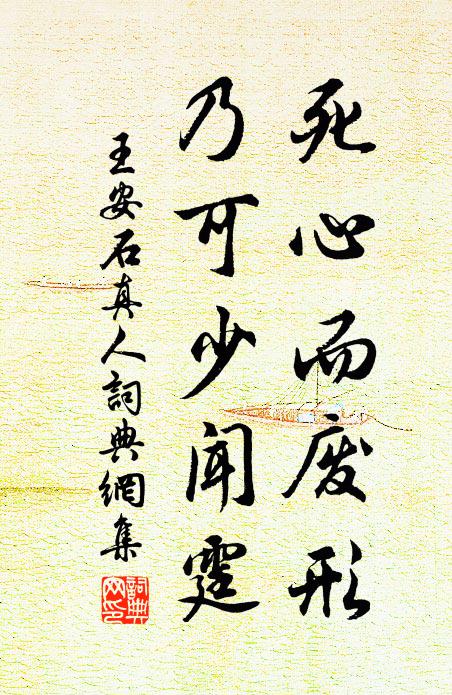 死心而废形
乃可少闻霆
王安石真人詞典網集
詞典网印